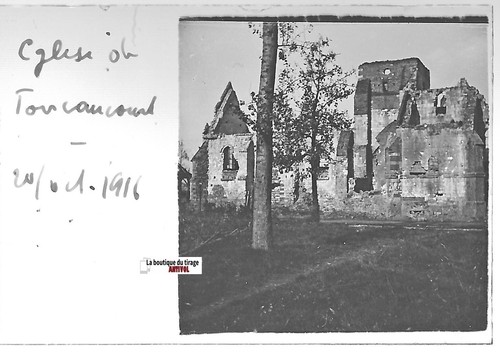 Eglise de
Foucaucourt
20/oct. 1916
La boutique du tirage
ANTIVOL